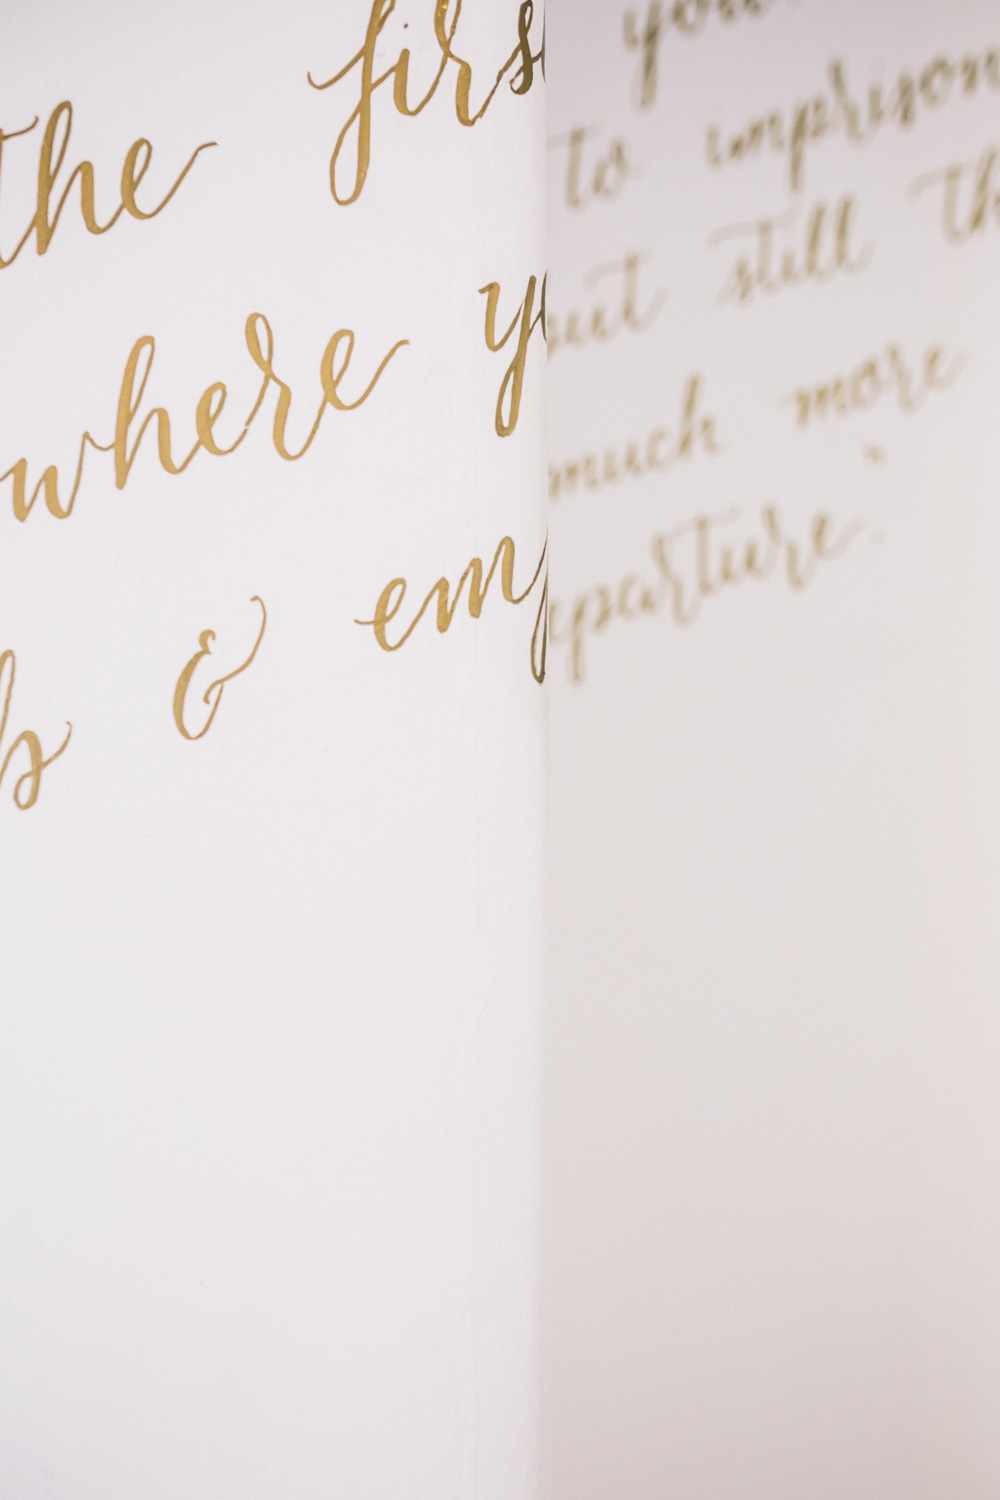 the firs
where yo
& em
you
to imprison
but still th
much more
eparture.